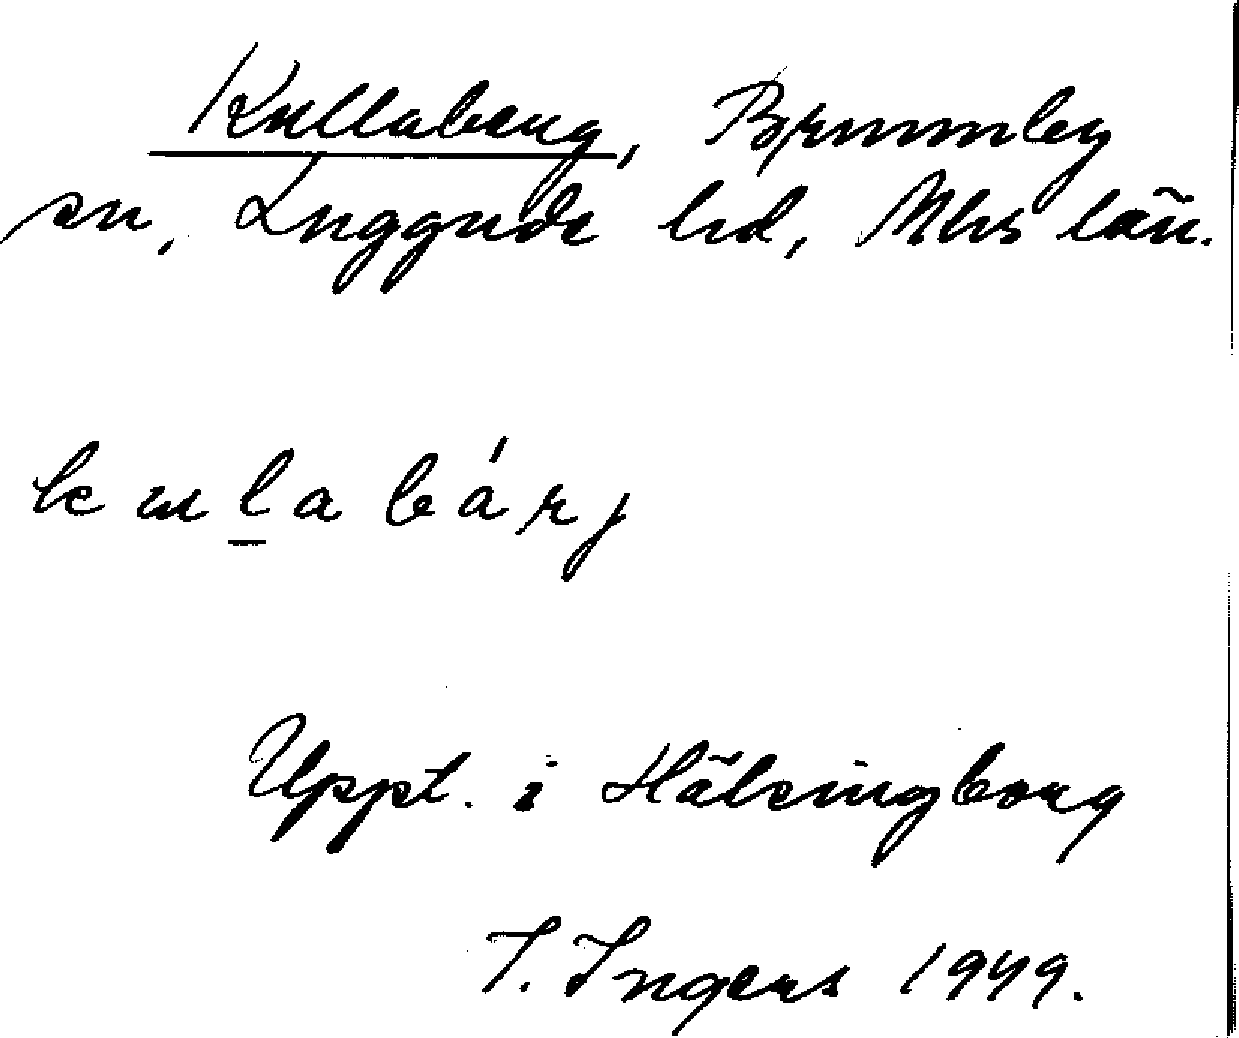 Kullaberg, Brunnby
sn, Luggude hd, Mhs län.
kuḻabárj
Uppt. i Hälsingborg
I. Ingers 1949.